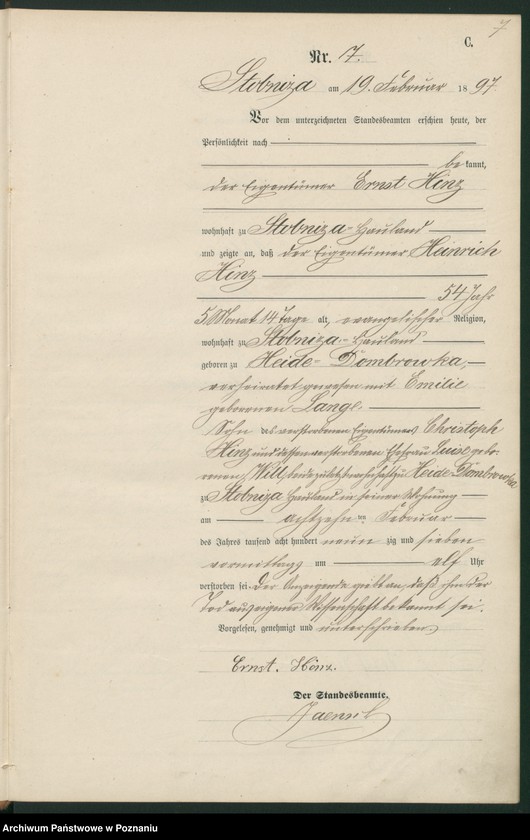 7
C.
Nr. 7.
Stobniza am 19. Februar 1897
Vor dem unterzeichneten Standesbeamten erschien heute, der
Persönlichkeit nach
bekannt,
der Eigentümer Ernst Hinz
wohnhaft zu Stobniza-Hauland
und zeigte an, daß der Eigentümer Heinrich
Hinz
54 Jahr
5 Monat 14 Tage alt, evangelischer Religion,
wohnhaft zu Stobniza-Hauland
geboren zu Heide-Dombrowka,
verheiratet gewesen mit Emilie
geborenen Lange
Sohn des verstorbenen Eigentümers Christoph
Hinz und dessen verstorbenen Ehefrau Luise gebo-
renen Will, beide zuletzt wohnhaft zu Heide-Dombrowka
zu Stobniza Hauland in seiner Wohnung
am achtzehnten Februar
des Jahres tausend acht hundert neunzig und sieben
vormittags um elf Uhr
verstorben sei. Der Anzeigende giebt an, daß ihm der
Tod aus eigener Wissenschaft bekannt sei.
Vorgelesen, genehmigt und unterschrieben
Ernst. Hinz.
Der Standesbeamte.
Jaensch
Archiwum Państwowe w Poznaniu